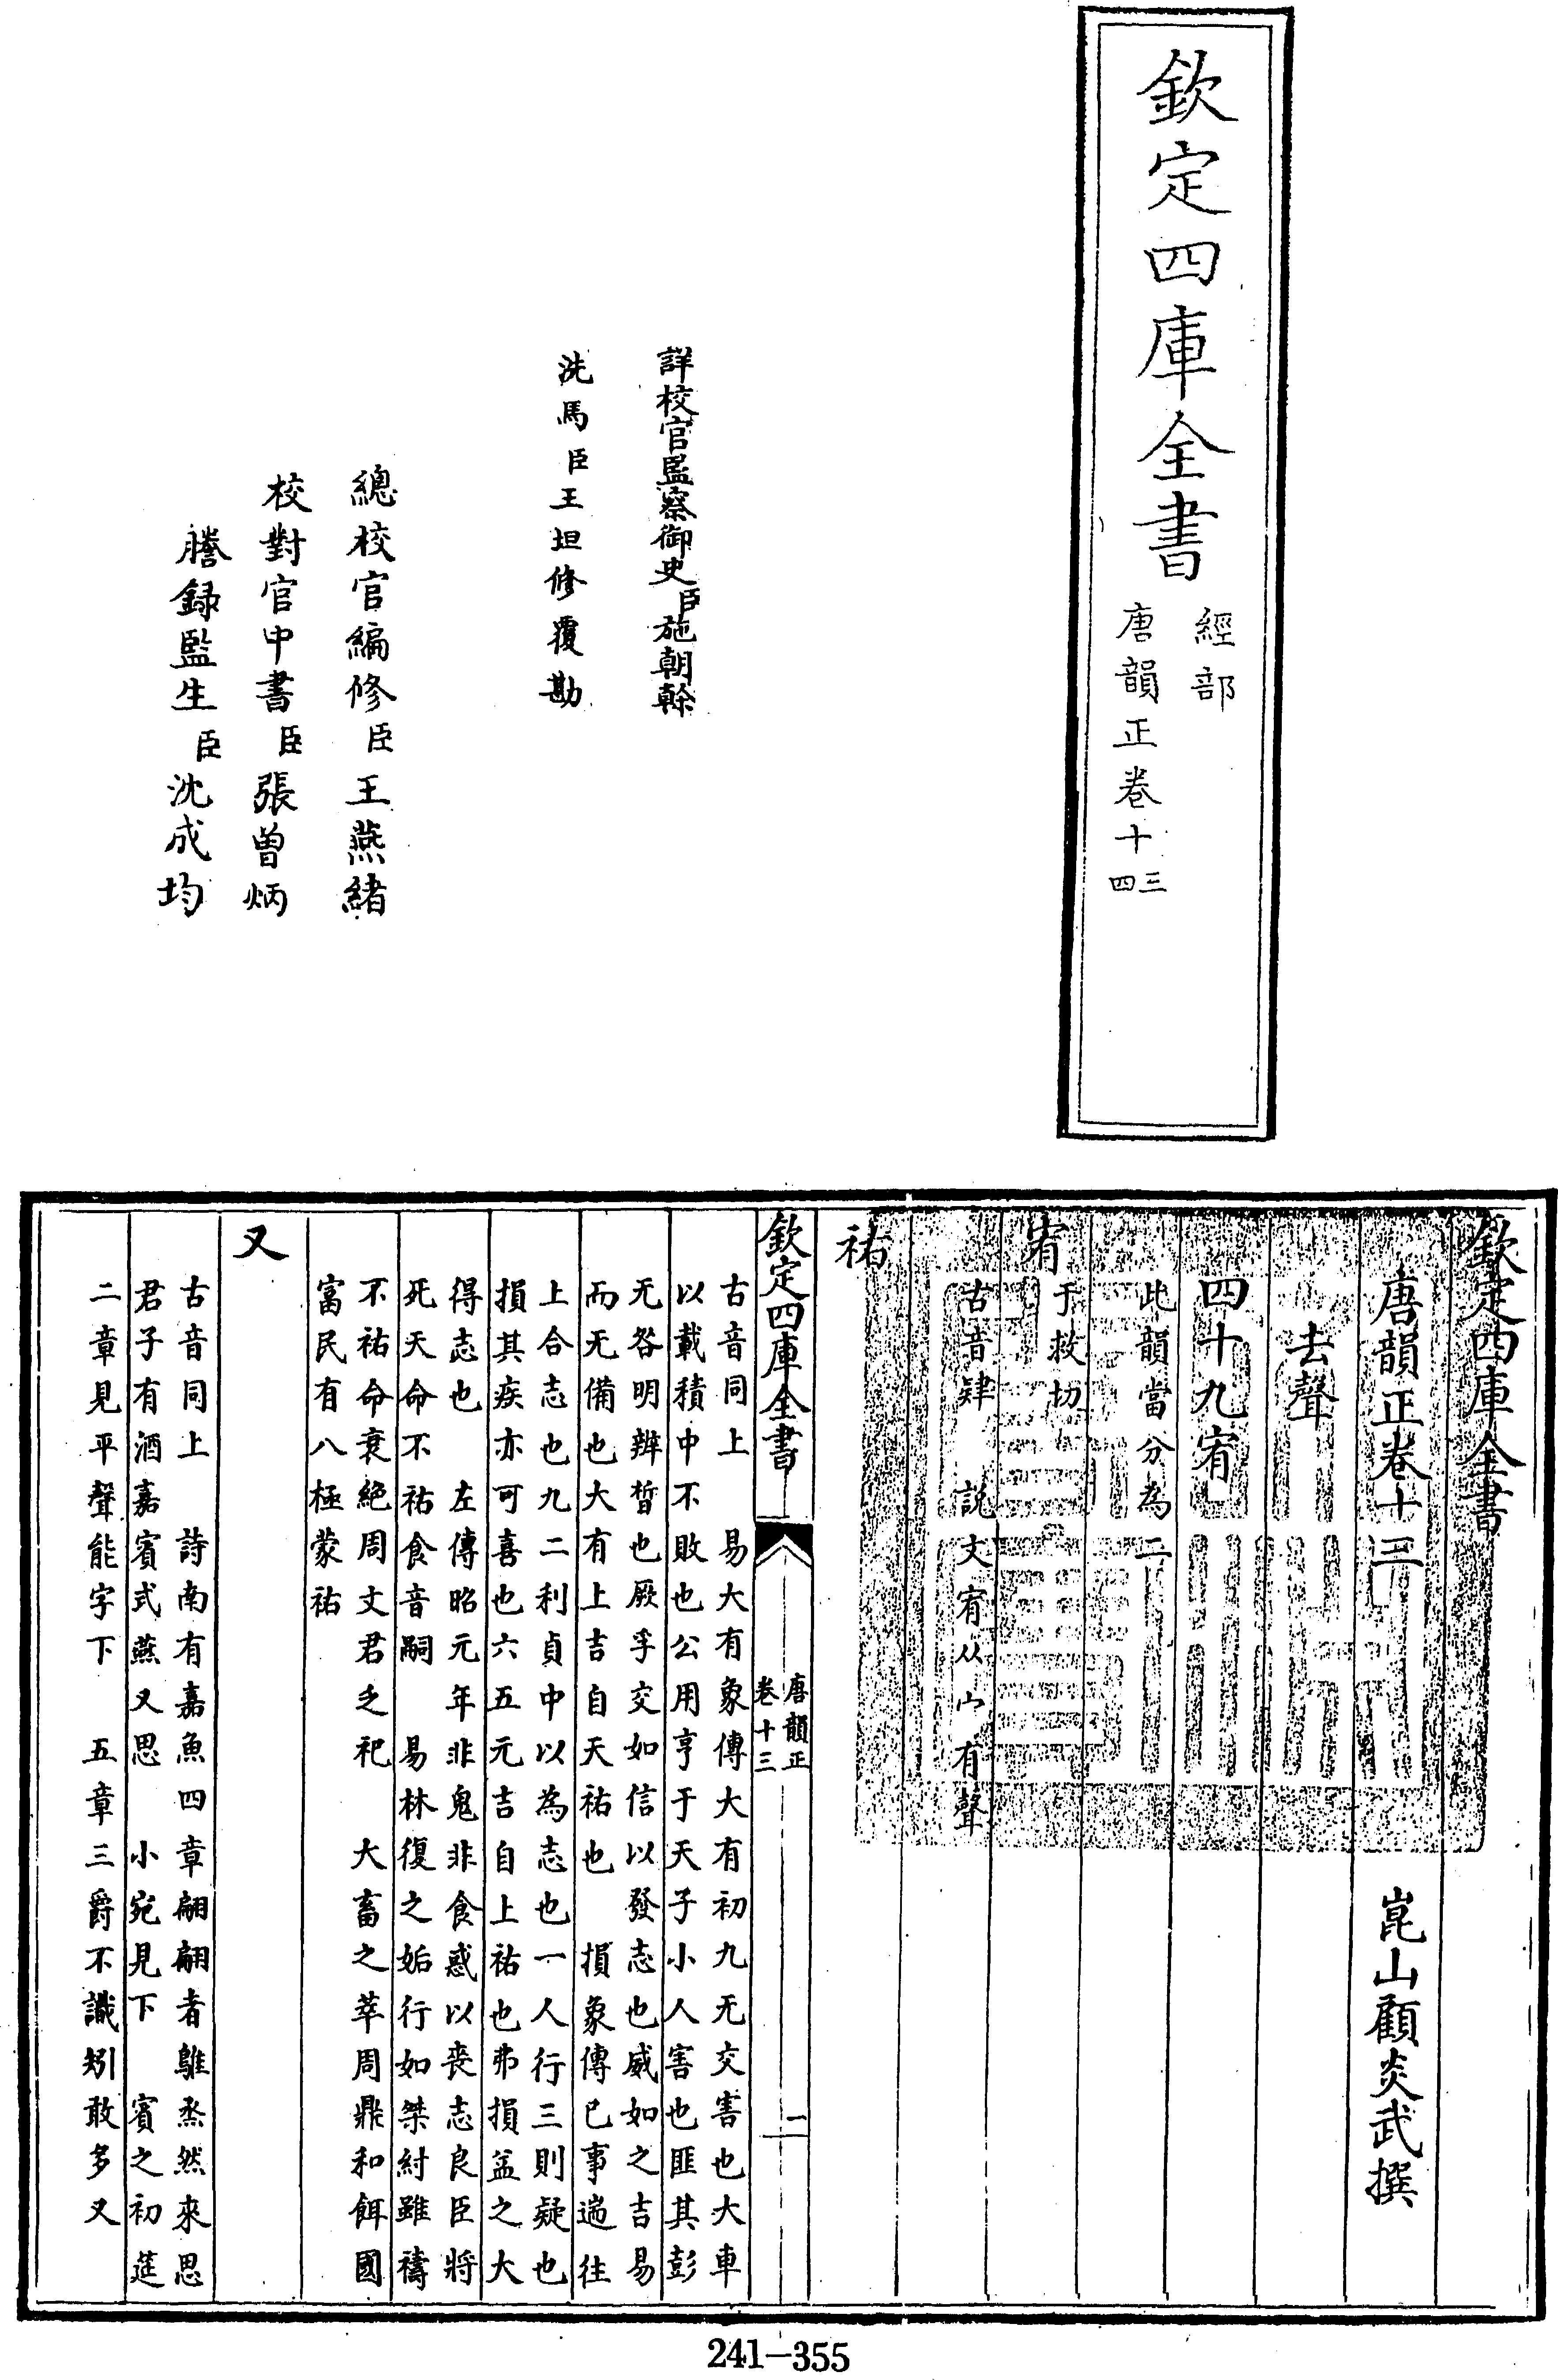 欽定四庫全書
經部
唐韻正卷十三四
詳校官監察御史臣施朝幹
洗馬臣王坦修覆勘
總校官編修臣王燕緒
校對官中書臣張曾炳
謄錄監生臣沈成均
欽定四庫全書
唐韻正卷十三
崑山顧炎武撰
去聲
四十九宥
此韻當分為二
宥
于救切
古音肄　說文宥从宀有聲
祐
欽定四庫全書
唐韻正
卷十三
一
古音同上　易大有象傳大有初九无交害也大車
以載積中不敗也公用亨于天子小人害也匪其彭
无咎明辨晳也厥孚交如信以發志也威如之吉易
而无備也大有上吉自天祐也　損象傳已事遄往
上合志也九二利貞中以為志也一人行三則疑也
損其疾亦可喜也六五元吉自上祐也弗損益之大
得志也　左傳昭元年非鬼非食惑以喪志良臣將
死天命不祐食音嗣　易林復之姤行如桀紂雖禱
不祐命衰絕周文君乏祀　大畜之萃周鼎和餌國
富民有八極蒙祐
又
古音同上　詩南有嘉魚四章翩翩者鵻烝然來思
君子有酒嘉賓式燕又思　小宛見下　賓之初筵
二章見平聲能字下　五章三爵不識矧敢多又
241-355